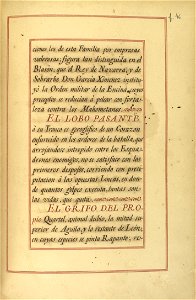 ciones les de esta Familia por empresas
valerosas; figura tan distinguida en el
Blason, que el Rey de Navarra, y de
Sobrarbe Don Garcia Ximenez instituyó
la Orden militar de la Encina, cuyos
preceptos se reducian á pelear con forta-
leza contra los Mahometanos.
EL LOBO PASANTE
á su Tronco es geroglifico de un Corazon
enfurecido en los ardores de la batalla, que
arrojandose intrepido entre los Esqua-
drones enemigos, no se satisface con las
primeros despojos, corriendo con preci-
pitacion á las opuestas Lineas, en don-
de quantos golpes executa, tantas son
las vidas, que quita.
EL GRIFO DEL PRO-
pio Quartel, animal doble, la mitad su-
perior de Aguila, y lo restante de Leon,
en cuyas especies se pinta Rapante, re-